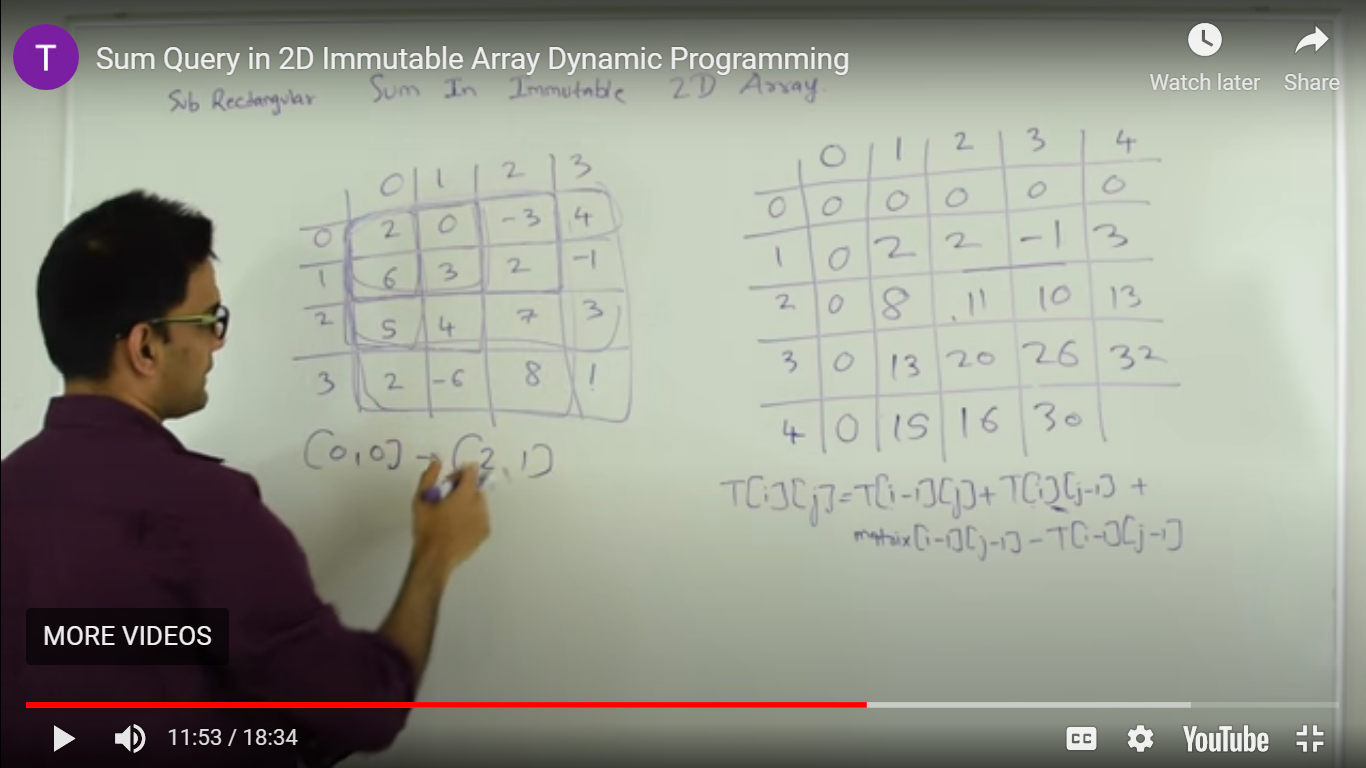 T
Sum Query in 2D Immutable Array Dynamic Programming
Watch later
Share
Sub Rectangular Sum In Immutable 2D Array.
0 1 2 3
0 2 0 -3 4
1 6 3 2 -1
2 5 4 7 3
3 2 -6 8 1
(0,0] → (2,1]
0 1 2 3 4
0 0 0 0 0 0
1 0 2 2 -1 3
2 0 8 11 10 13
3 0 13 20 26 32
4 0 15 16 30
T[i][j]=T[i-1][j]+T[i][j-1] +
matrix[i-1][j-1]-T[i-1][j-1]
MORE VIDEOS
11:53 / 18:34
CC
YouTube